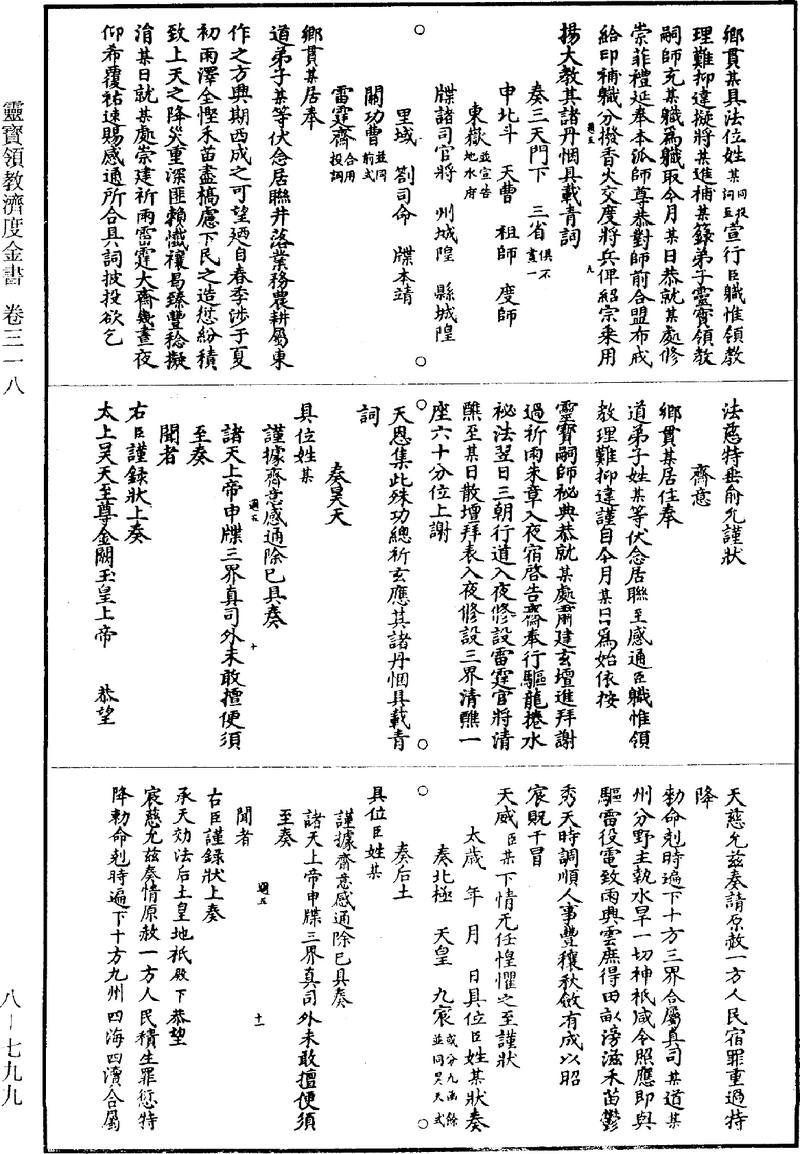 鄉貫某具法位姓某同投詞至宣行臣職惟領教
理難抑違擬將某進補某籙弟子靈寶領教
嗣師充某職為職取今月某日恭就某處修
崇菲禮延奉本派師尊恭對師前合盟布戒
給印補職分撥香火交度將兵俾紹宗乘用
揚大教其諸丹悃具載青詞
週五
九
奏三天門下 三省俱不書一
申北斗 天曹 祖師 度師
東嶽並宣告地水府
牒諸司官將 州城隍 縣城隍
里域 劄司命 牒本靖
關功曹並同前式
雷霆齋合用投詞
鄉貫某居奉
道弟子某等伏念居聯井落業務農耕屬東
作之方興期西成之可望廼自春季涉于夏
初雨澤全慳禾苗盡槁慮下民之造愆紛積
致上天之降災重深匪賴懺禳曷臻豐稔擬
涓某日就某處崇建祈雨雷霆大齋幾晝夜
仰希覆祐速賜感通所合具詞披投欲乞
法慈特垂俞允謹狀
齋意
鄉貫某居住奉
道弟子姓某等伏念居聯至感通臣職惟領
教理難抑違謹自今月某日為始依按
靈寶嗣師祕典恭就某處肅建玄壇進拜謝
過祈雨朱章入夜宿啓告齋奉行驅龍捲水
祕法翌日三朝行道入夜修設雷霆官將清
醮至某日散壇拜表入夜修設三界清醮一
座六十分位上謝
天恩集此殊功總祈玄應其諸丹悃具載青
詞
奏昊天
具位姓某
謹據齋意感通除已具奏
週五
十
諸天上帝申牒三界真司外未敢擅便須
至奏
聞者
右臣謹錄狀上奏
太上昊天至尊金闕玉皇上帝 恭望
天慈允茲奏請原赦一方人民宿罪重過特
降
勑命剋時遍下十方三界合屬真司某道某
州分野主執水旱一切神祇咸令照應即與
驅雷役電致雨興雲庶得田畝滂滋禾苗鬱
秀天時調順人事豐穰秋斂有成以昭
宸貺干冒
天威臣某下情无任惶懼之至謹狀
太歲 年 月 日具位臣姓某狀奏
奏北極 天皇 九宸或分九函餘並同昊天式
奏后土
具位臣姓某
謹據齋意感通除已具奏
諸天上帝申牒三界真司外未敢擅便須
至奏
聞者
週五
十一
右臣謹錄狀上奏
承天効法后土皇地祇殿下恭望
宸慈允茲奏情原赦一方人民積生罪愆特
降勑命剋時遍下十方九州四海四瀆合屬
靈寶領教濟度金書 卷三一八
八－七九九